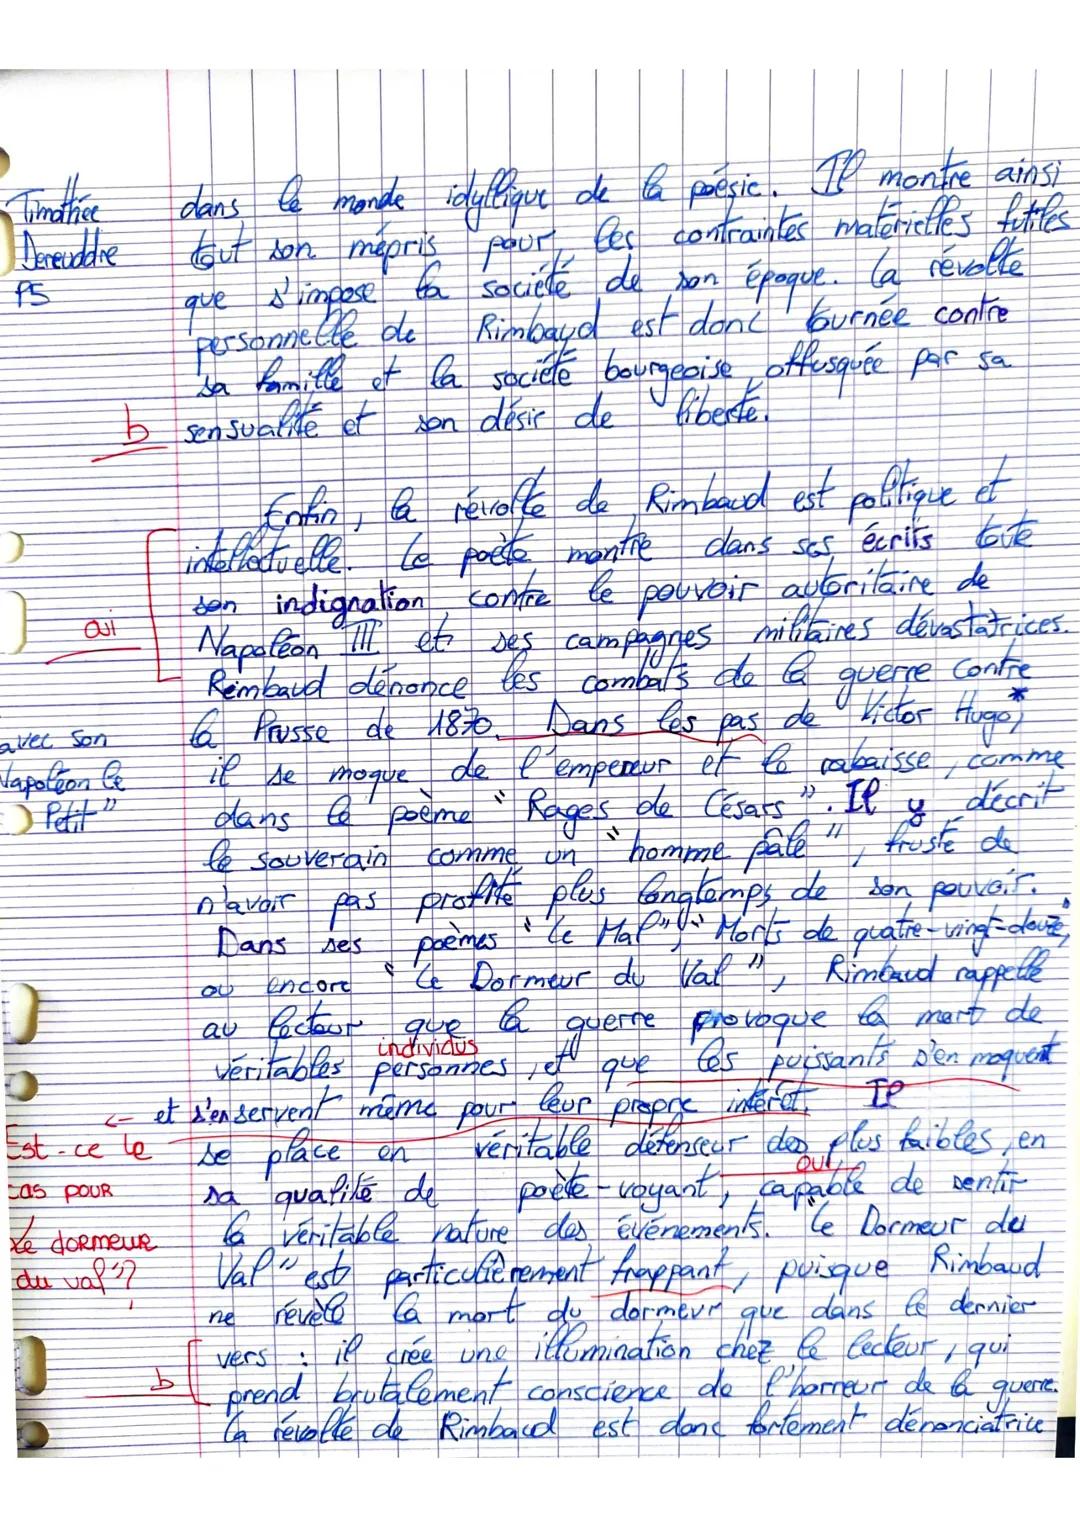 Timothée
Dereuddre
P5
dans le monde idyllique de la poésie. Il montre ainsi
tout son mépris pour les contraintes matérielles futiles
que s'impose la société de son époque. La révolte
personnelle de Rimbaud est donc tournée contre
sa famille et la société bourgeoise, offusquée par sa
b sensualité et son désir de liberté.
Enfin, la révolte de Rimbaud est politique et
intellectuelle. Le poète montre dans ses écrits toute
son indignation contre le pouvoir autoritaire de
oui
Napoléon III et ses campagnes militaires dévastatrices.
Rimbaud dénonce les combats de la guerre contre
la Prusse de 1870. Dans les pas de Victor Hugo*,
avec son
Napoléon le
Petit"
il se moque de l'empereur et le rabaisse, comme
dans le poème "Rages de Césars". Il y décrit
le souverain comme un "homme pâle", frusté de
n'avoir pas profité plus longtemps de son pouvoir.
Dans ses poèmes "Le Mal", "Morts de quatre-vingt-douze",
ou encore "Le Dormeur du Val", Rimbaud rappelle
au lecteur que la guerre provoque la mort de
individus
véritables personnes, et que les puissants s'en moquent
← et s'en servent même pour leur propre intérêt. Il
Est-ce le
cas pour
"Le dormeur
du val"?
se place en véritable défenseur des plus faibles, en
oui
sa qualité de poète-voyant, capable de sentir
la véritable nature des événements. "Le Dormeur du
Val" est particulièrement frappant, puisque Rimbaud
ne révèle la mort du dormeur que dans le dernier
vers : il crée une illumination chez le lecteur, qui
b prend brutalement conscience de l'horreur de la guerre.
La révolte de Rimbaud est donc fortement dénonciatrice